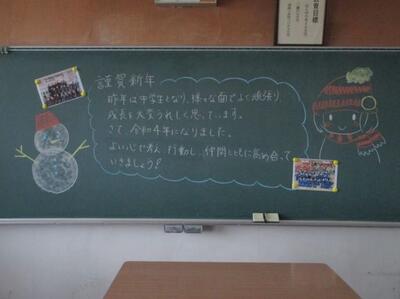 教育目標
謹賀新年
昨年は中学生となり、様々な面でよく頑張り、
成長を大変うれしく思っています。
さて、令和4年になりました。
よい心で考え、行動し、仲間とともに高め合って
いきましょう!